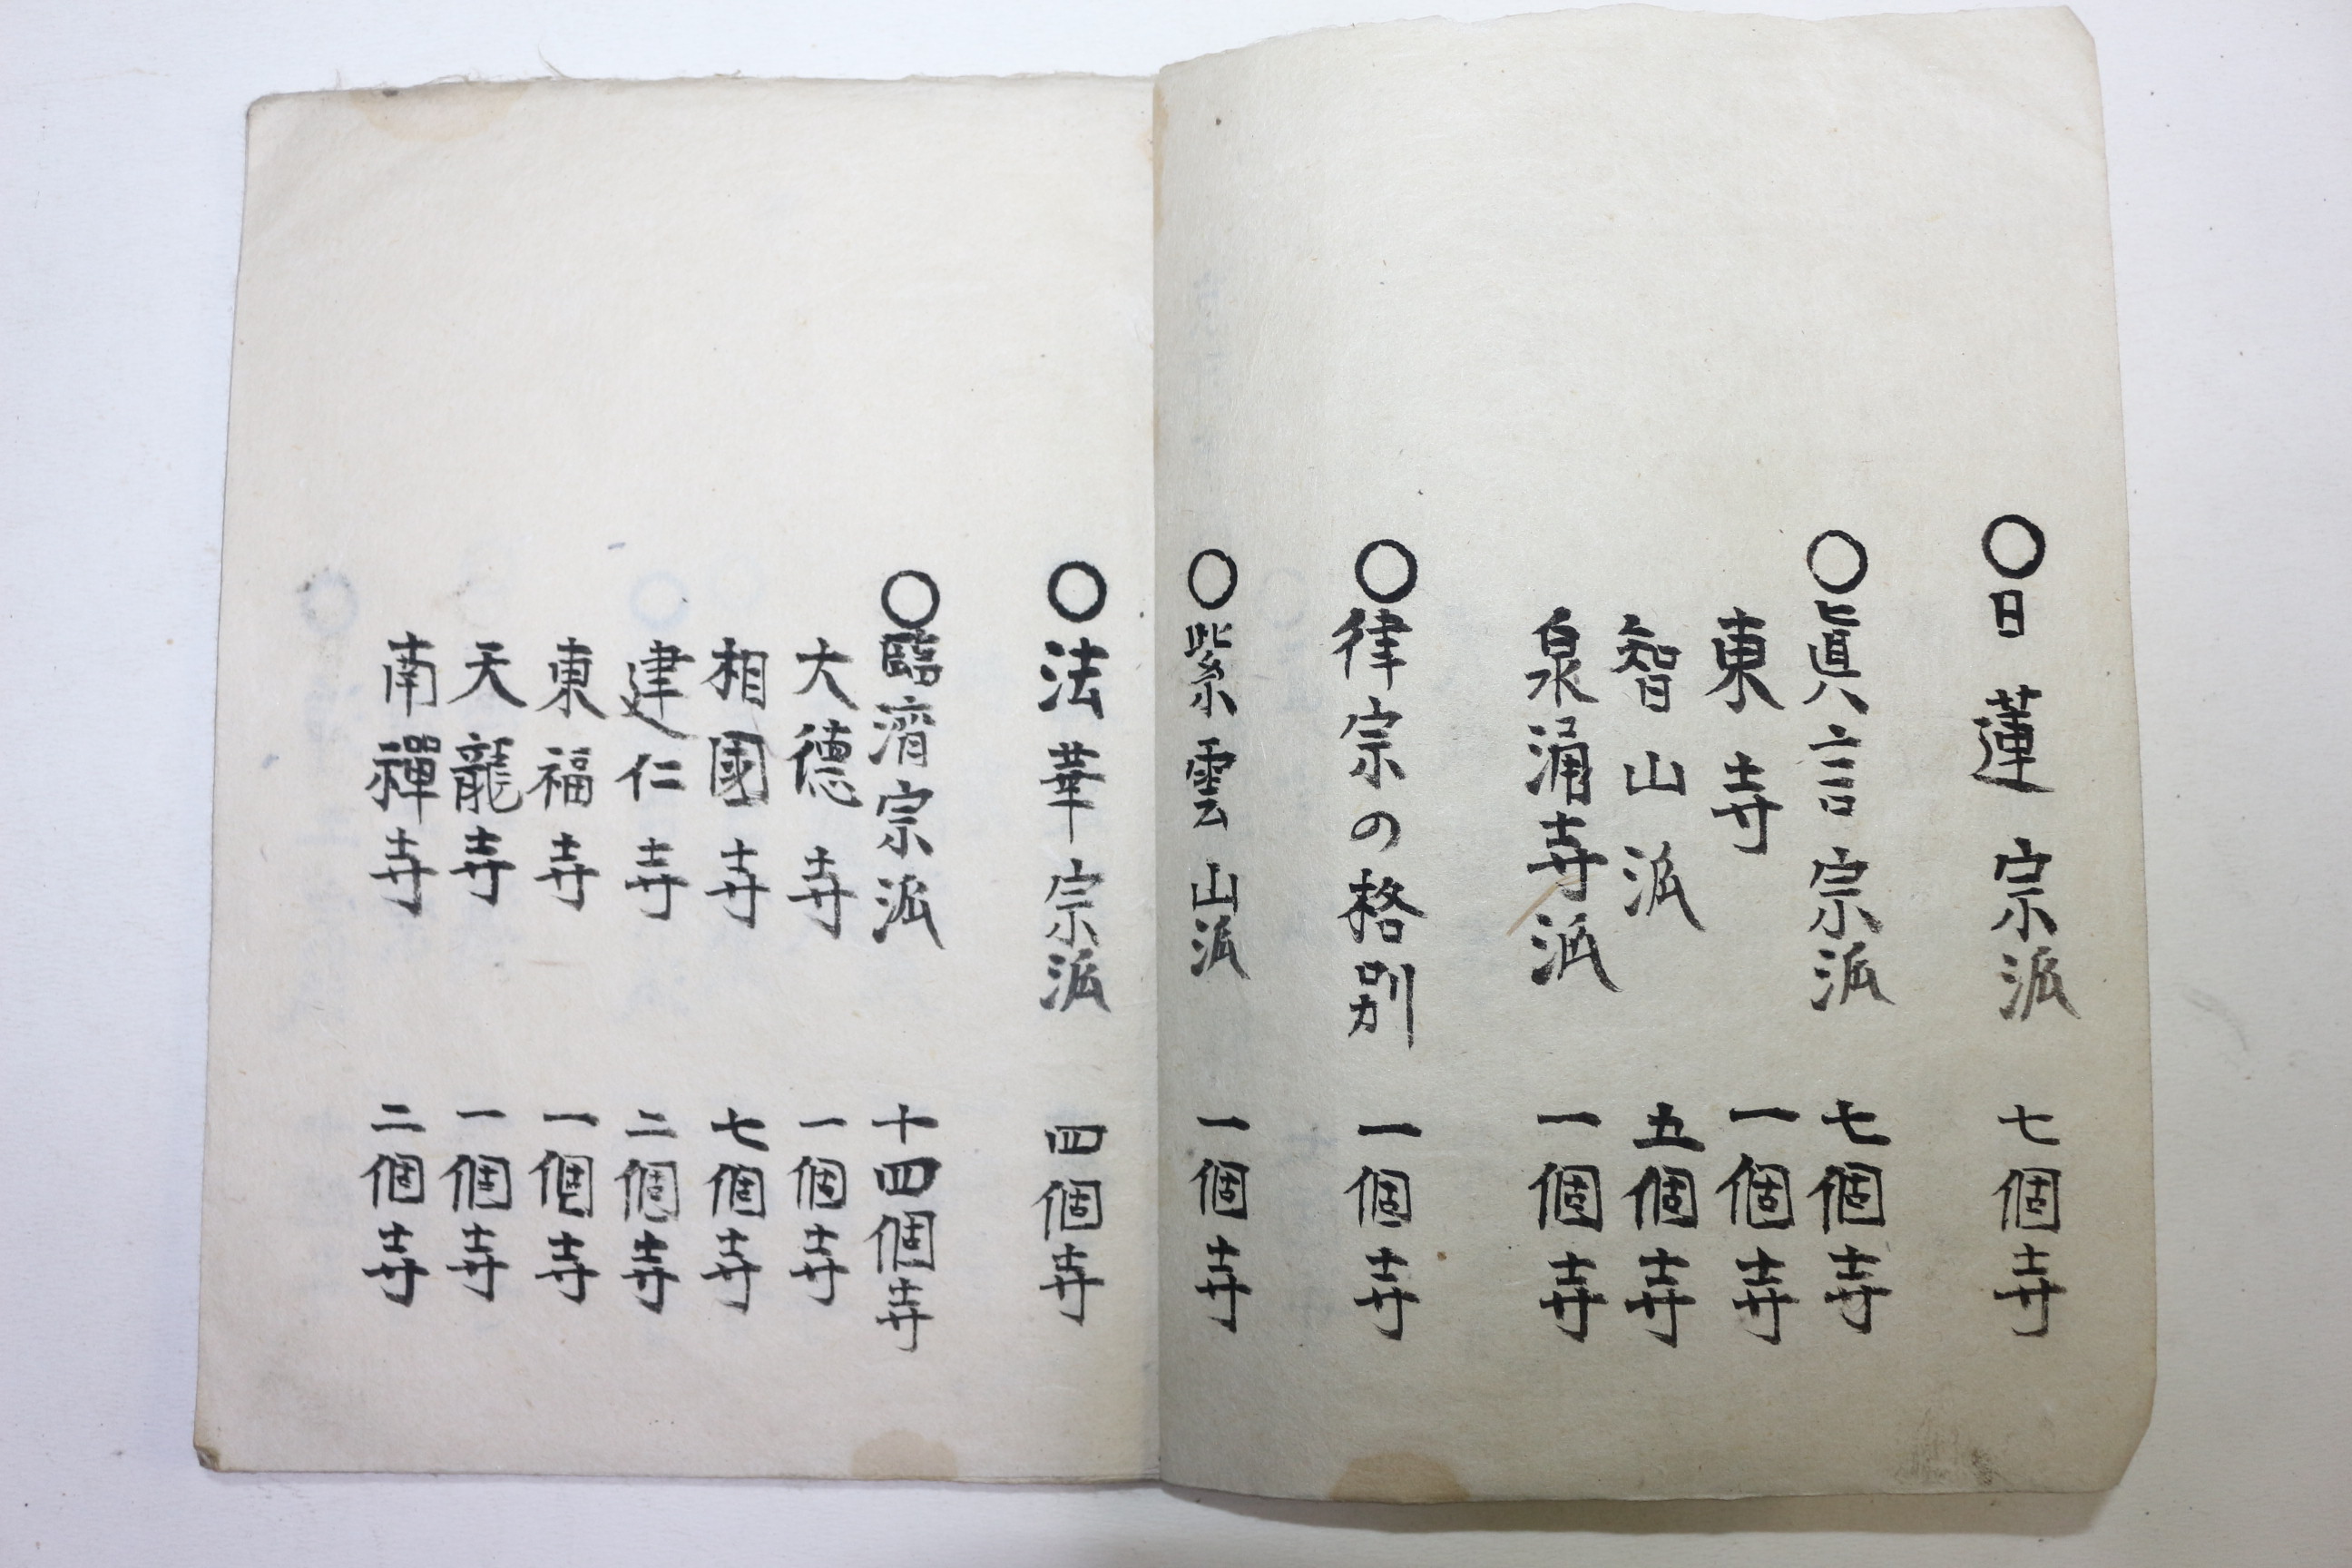 ○日蓮宗派 七個寺
○眞言宗派 七個寺
東寺 一個寺
智山派 五個寺
泉涌寺派 一個寺
○律宗の格別 一個寺
○紫雲山派 一個寺
○法華宗派 四個寺
○臨濟宗派 十四個寺
大德寺 一個寺
相國寺 七個寺
建仁寺 二個寺
東福寺 一個寺
天龍寺 一個寺
南禪寺 二個寺